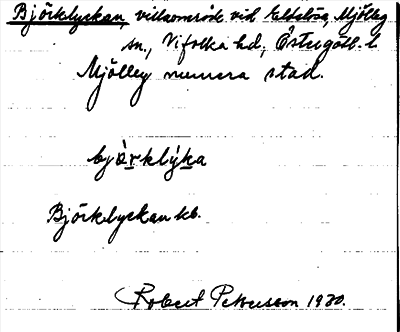 Björklyckan, villaområde vid Eldslösa, Mjölby
sn., Vifolka hd., Östergötl. l
Mjölby numera stad.
bjò̀rklýka
Björklyckan kb.
Robert Pettersson 1930.